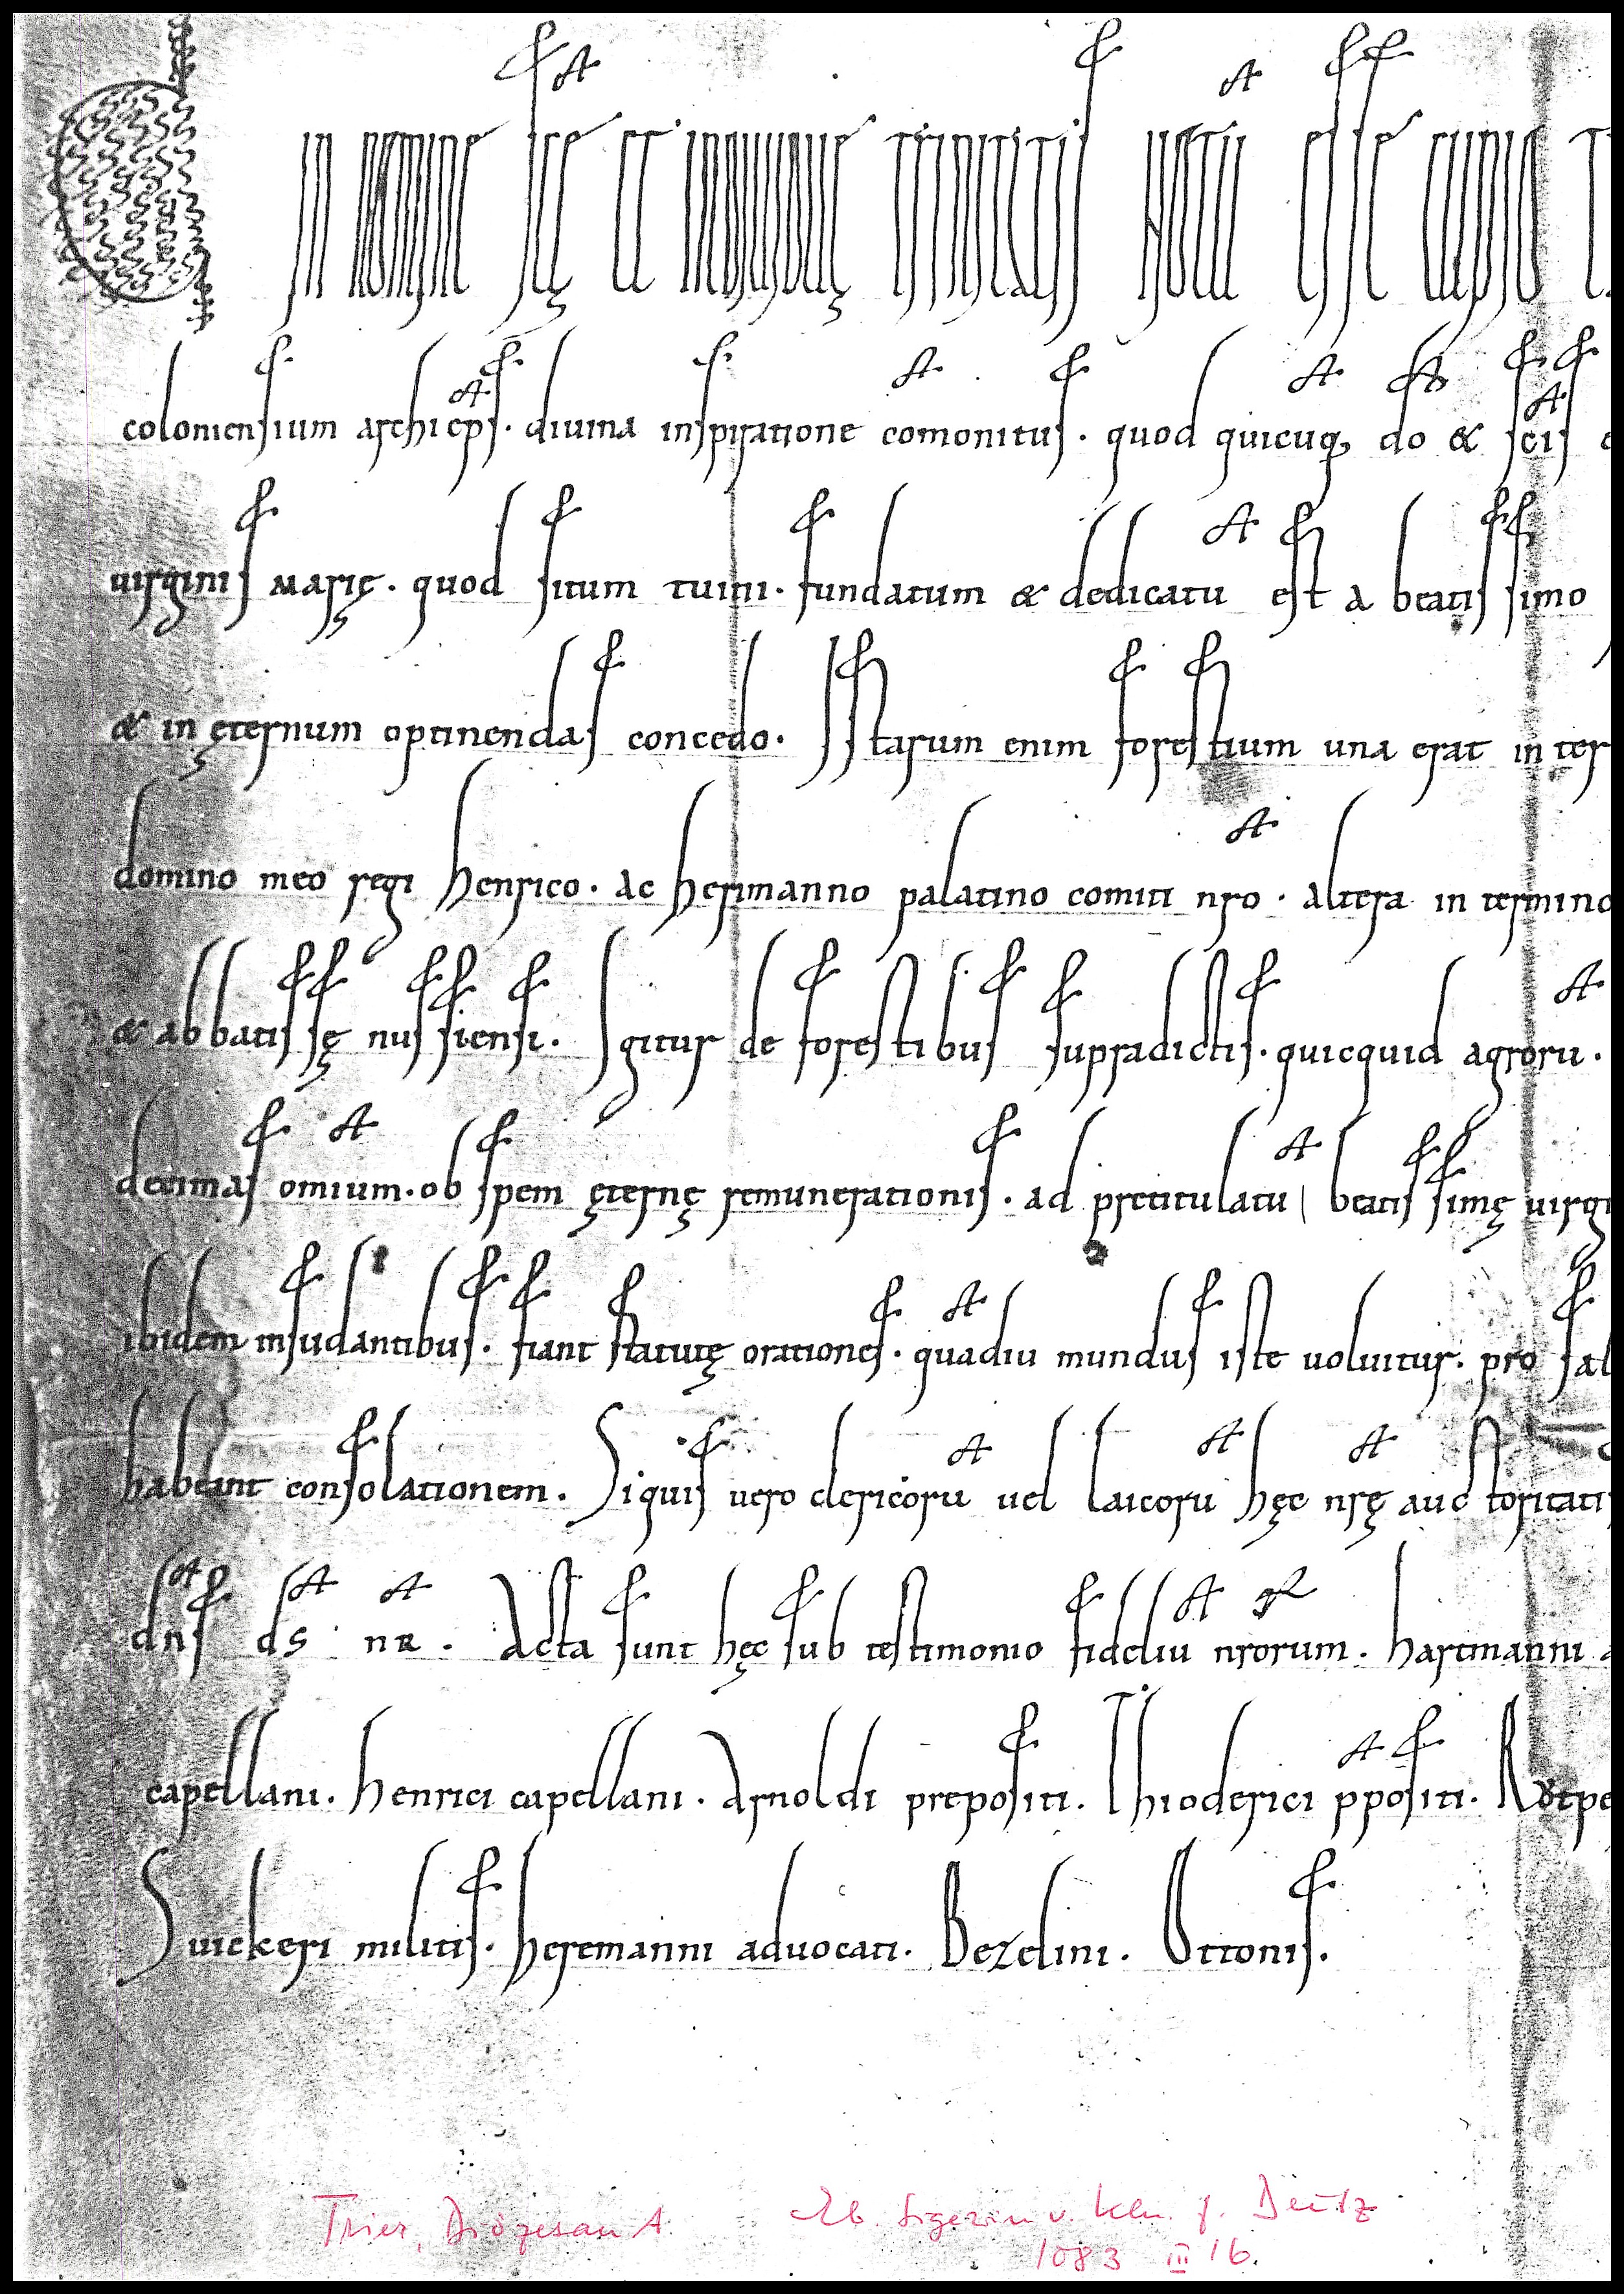 In nomine scę et indiuiduę trinitatis Notū esse cupio
coloniensium archiep̄s. diuina inspiratione comonitus. quod quicūq; dō & scīs
uirginis Marię. quod situm tuitii. fundatum & dedicatū est a beatissimo
& in ęternum optinendas concedo. Istarum enim forestium una erat in ter
domino meo regi Henrico. ac Herimanno palatino comiti nr̄o. altera in termino
& abbatissę nussiensi. Igitur de forestibus supradictis. quicquid agrorū.
decimas omīum. ob spem ęternę remunerationis. ad pretitulatū beatissimę uirgi
ibidem insudantibus. fiant statutę orationes. quādiu mundus iste uoluitur. pro sal
habeant consolationem. Siquis uero clericorū uel laicorū hęc nr̄ę auctoritatis
dn̄s d̄s nr̄. Acta sunt hęc sub testimonio fideliū nr̄orum. Hartmanni
capellani. Henrici capellani. Arnoldi prepositi. Thioderici p̄positi.
Suickeri militis. Heremanni aduocati. Bezelini. Ottonis.
Trier, Diözesan A. Eb. Sigewin v. Kln. f. Deutz
1083 III 16.